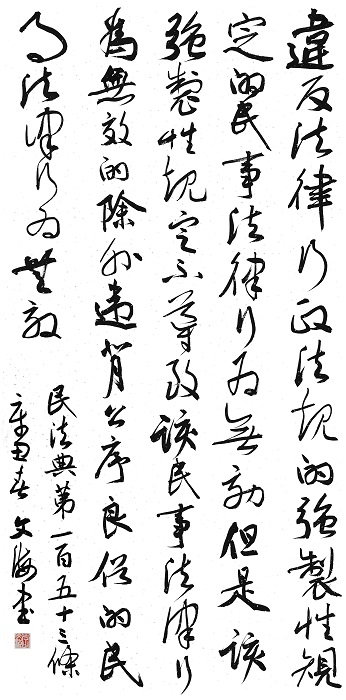 違反法律行政法規的強製性規
定的民事法律行為無効但是該
強製性規定不導致該民事法律行
為無效的除外違背公序良俗的民
事法律行為無效
民法典第一百五十三條
辛丑春文海書